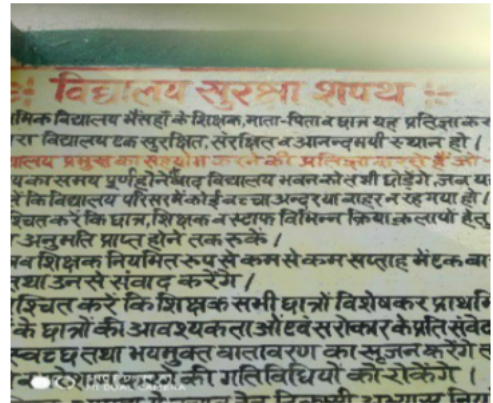 विद्यालय सुरक्षा शपथ
मिक विद्यालय मैंसहों के शिक्षक, माता-पिता व छात्र यह प्रतिज्ञा कर
रा विद्यालय एक सुरक्षित, संरक्षित व आनन्दमयी स्थान हो।
यालय प्रमुख का सहयोग करने की प्रतिज्ञा करते हैं जो -
य का समय पूर्ण होने के बाद विद्यालय भवन को तभी छोड़ेंगे, जब य
रें कि विद्यालय परिसर में कोई बच्चा अन्दर या बाहर न रह गया हो।
श्चित करें कि छात्र, शिक्षक व स्टाफ विभिन्न क्रियाकलापों हेतु
अनुमति प्राप्त होने तक रुकें।
शिक्षक नियमित रुप से कम से कम सप्ताह में एक बा
तथा उनसे संवाद करेंगे।
श्चित करें कि शिक्षक सभी छात्रों विशेषकर प्राथमि
के छात्रों की आवश्यकताओं एवं सरोकार के प्रति संवेद
स्वच्छ तथा भयमुक्त वातावरण का सृजन करेंगे त
की गतिविधियों को रोकेंगे।
MI DUAL CAMERA